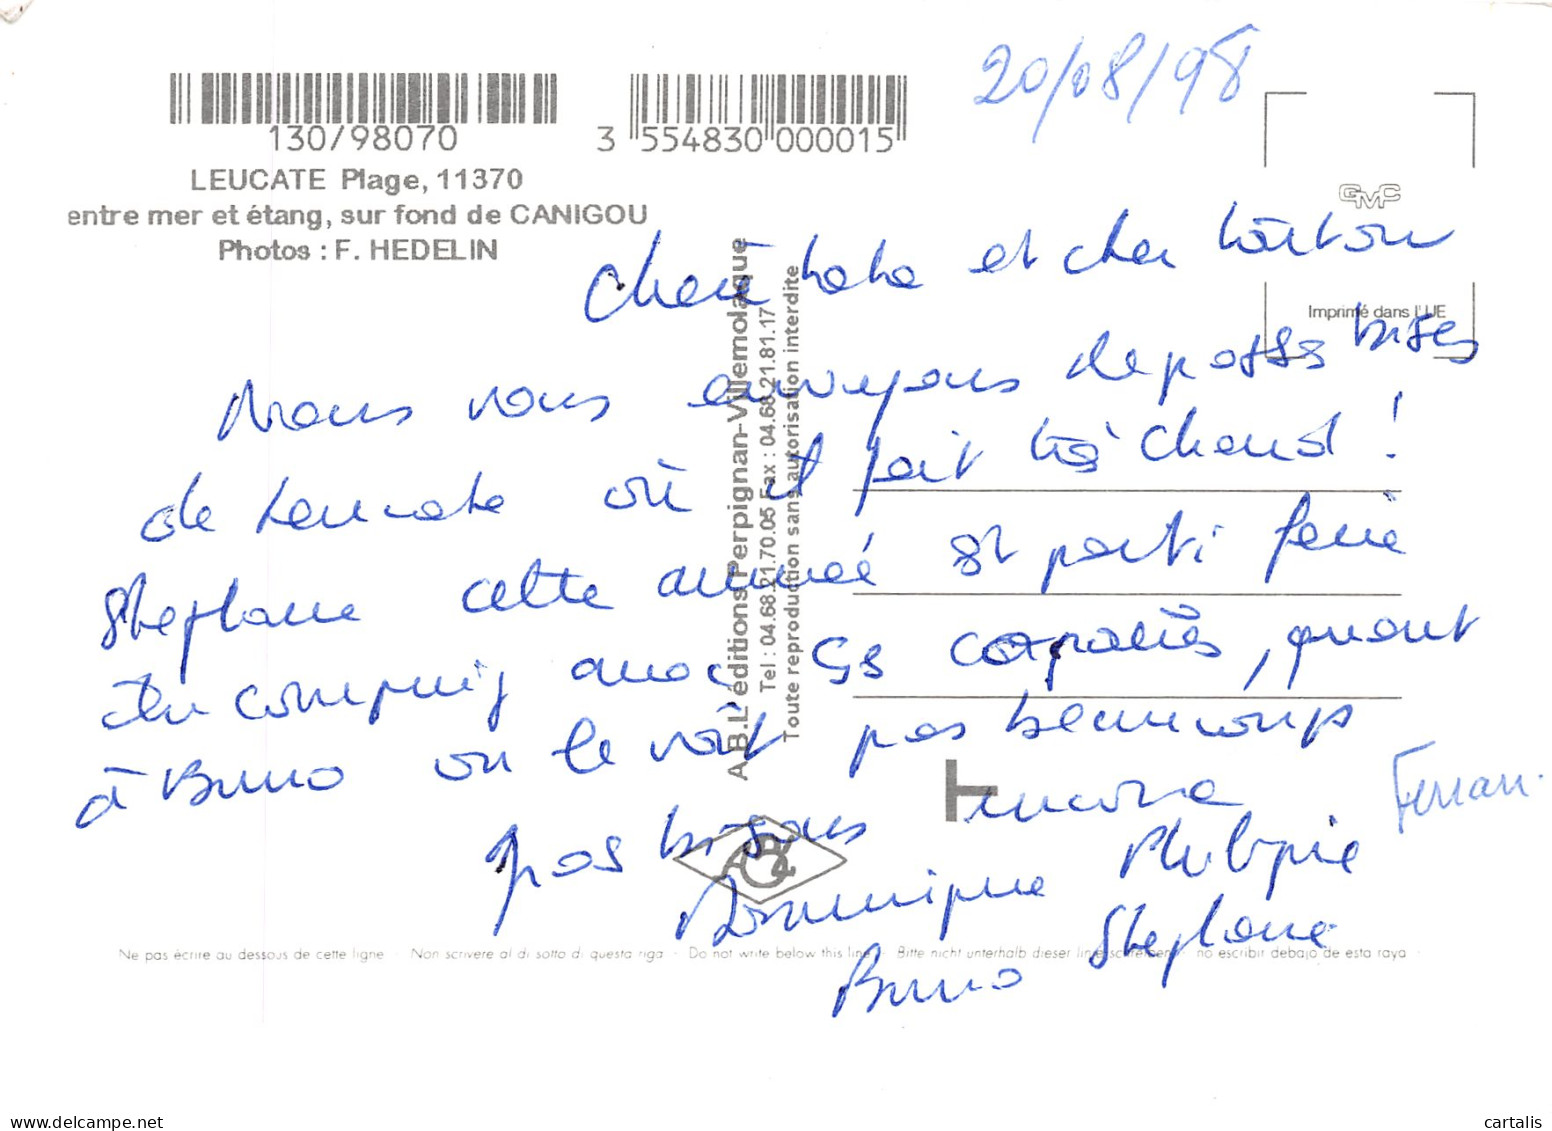 20/08/98
130/98070
3 554830 000015
LEUCATE Plage, 11370
entre mer et étang, sur fond de CANIGOU
Photos : F. HEDELIN
GMC
Imprimé dans l'UE
A.B.L éditions Perpignan-Villemolaque
Tel : 04.68.21.70.05 Fax : 04.68.21.81.17
Toute reproduction sans autorisation interdite
Chère tata et cher tonton
Nous vous envoyons de grosses bises
de Leucate où il fait très chaud !
Stephane cette année est parti
camping avec ses copains, quant
à Bruno on le voit pas beaucoup
encore
gros bisous
Ferran.
Dominique Philippe
Stephane
Bruno
Ne pas écrire au dessous de cette ligne · Non scrivere al di sotto di questa riga · Do not write below this line · Bitte nicht unterhalb dieser linie schreiben · no escribir debajo de esta raya
cartalis
delcampe.net